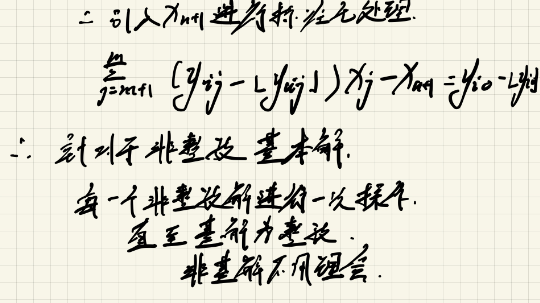 ∴ 引入 x_{n+1} 进行标准化处理.
\sum_{j=m+1}^{m} (y_{ij} - ⌊y_{ij}⌋) x_j - x_{n+1} = y_{i0} - ⌊y_{i0}
∴ 针对于非整数基本解.
每一个非整数解进行一次操作.
直至基解为整数.
非基解不用理会.